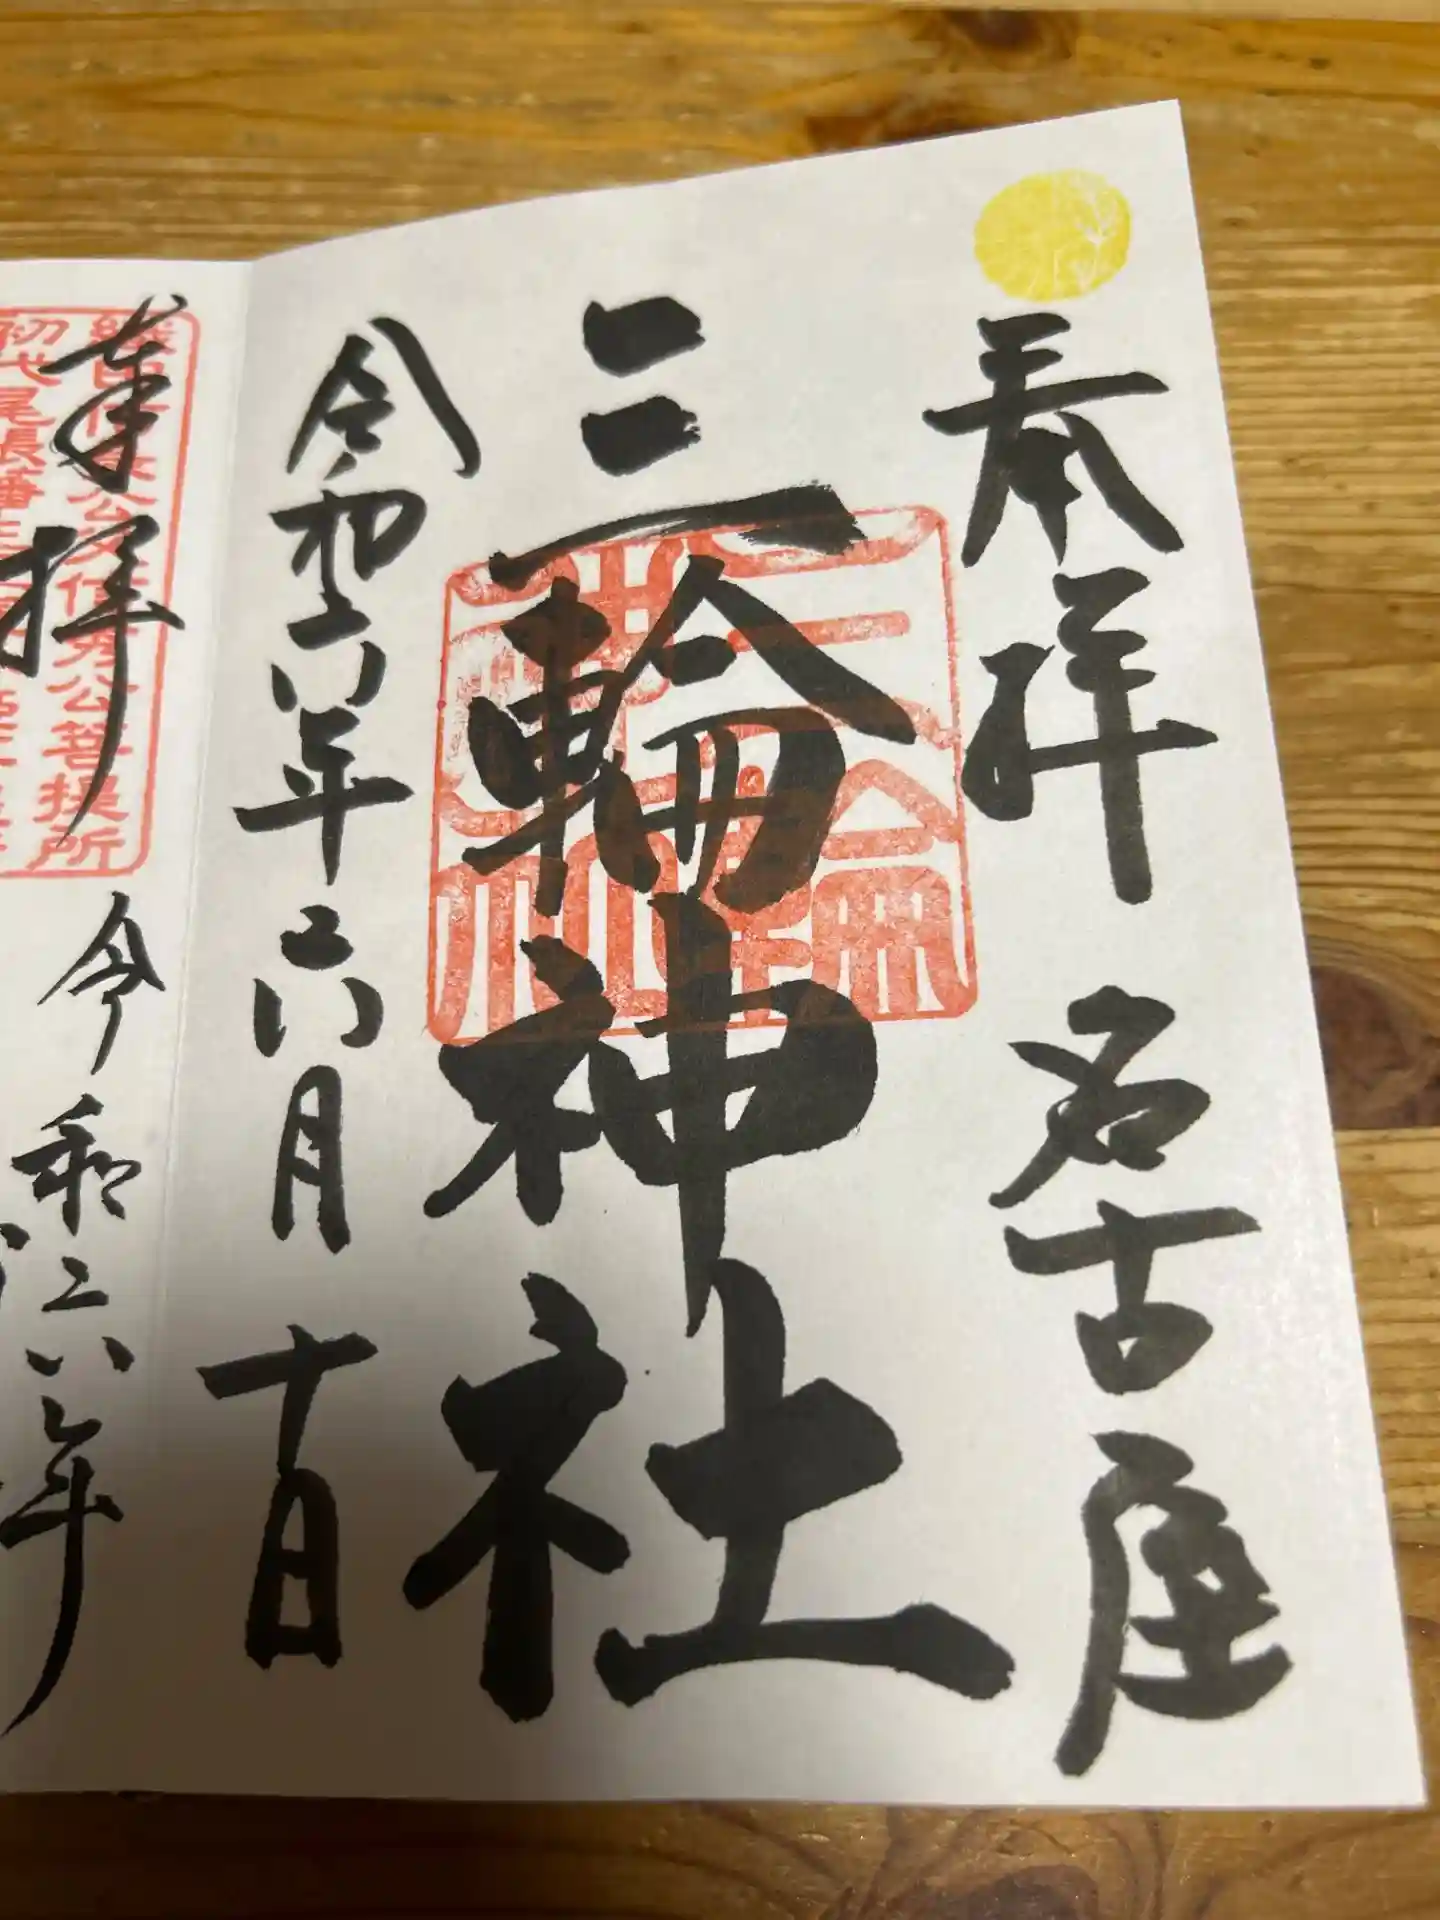 奉拝 名古屋
三輪神社
令和六年六月十日
三輪神社
奉拝
織田信長公父信秀公菩提所
初代尾張藩主
令和六年